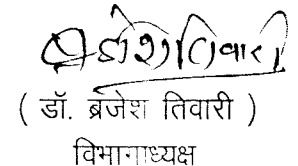 ब्रजेश तिवारी
( डॉ. ब्रजेश तिवारी )
विभागाध्यक्ष